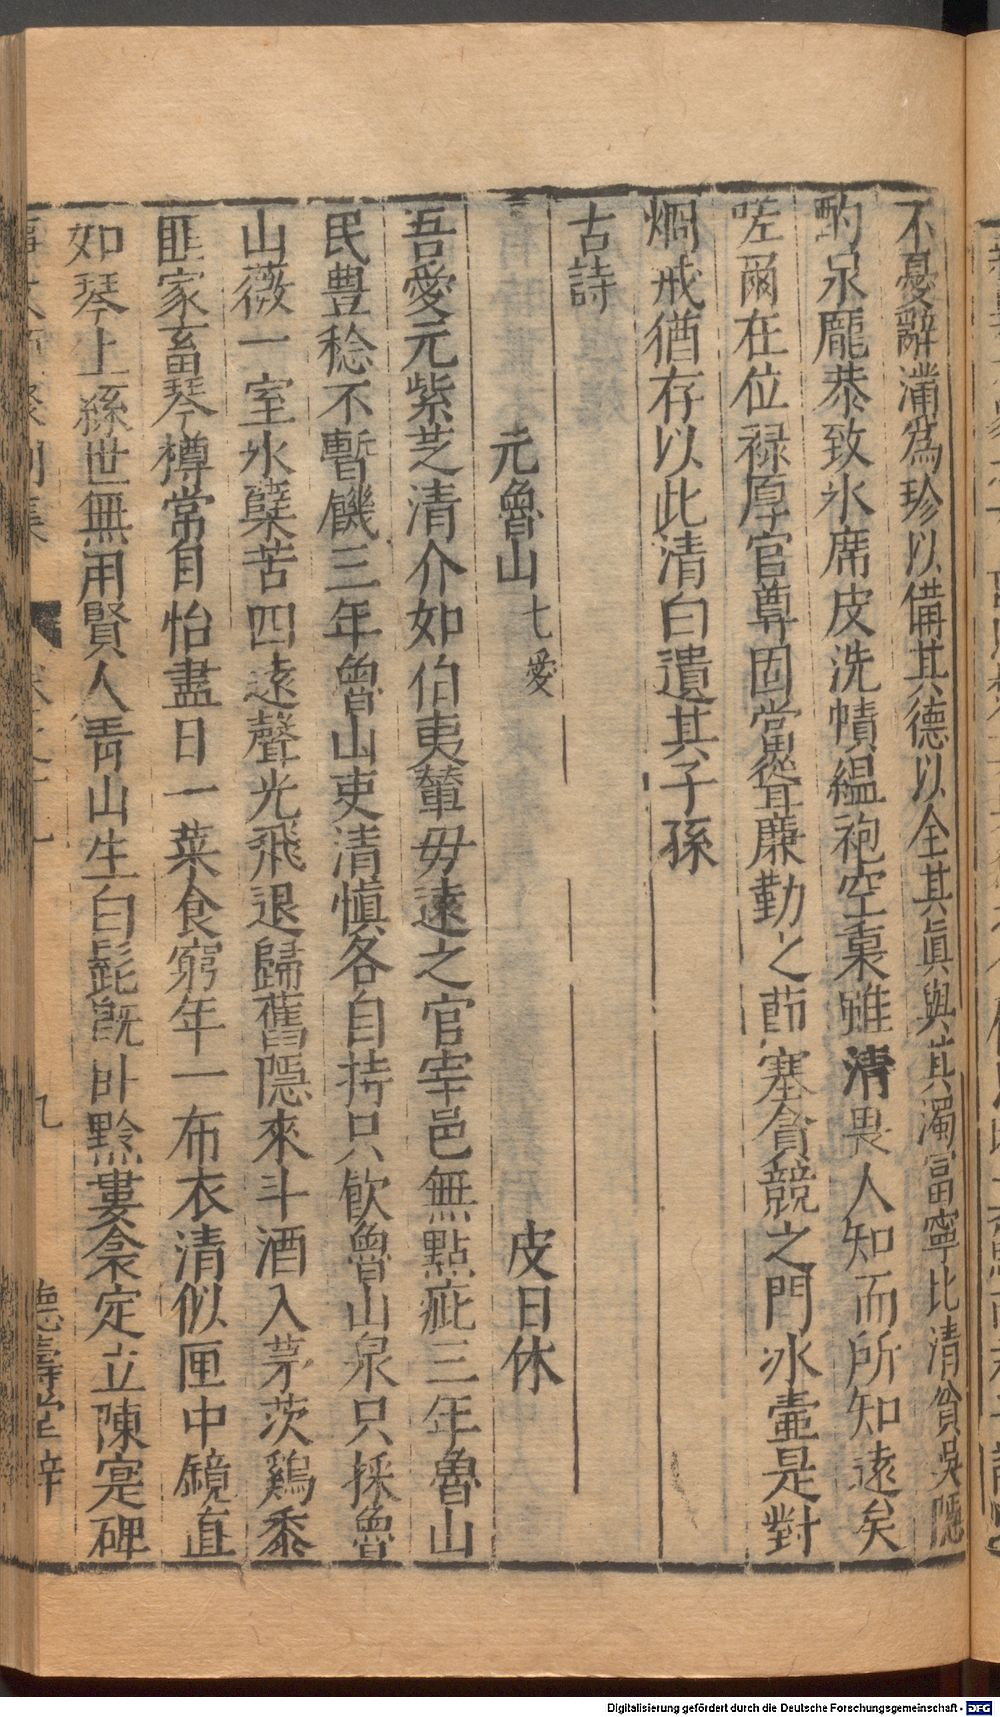 不憂辭滿為珍以備其德以全其眞與其濁富寧比清貧吳隱
酌泉龐恭致氷席皮洗幘緼袍空囊雖清畏人知而所知遠矣
嗟爾在位祿厚官尊固當聳廉勤之莭塞貪競之門氷壷是對
烱戒猶存以此清白遺其子孫
古詩
元魯山七愛 皮日休
吾愛元紫芝清介如伯夷輦毋遠之官宰邑無點疵三年魯山
民豊稔不暫饑三年魯山吏清慎各自持只飲魯山泉只採魯
山薇一室氷蘖苦四遠聲光飛退歸舊隱來斗酒入茅茨鷄黍
匪家畜琴樽常自怡盡日一菜食窮年一布衣清似匣中鏡直
如琴上絲世無用賢人靑山生白髭旣卧黔婁衾定立陳寔碑
九
德壽堂梓
Digitalisierung gefördert durch die Deutsche Forschungsgemeinschaft - DFG